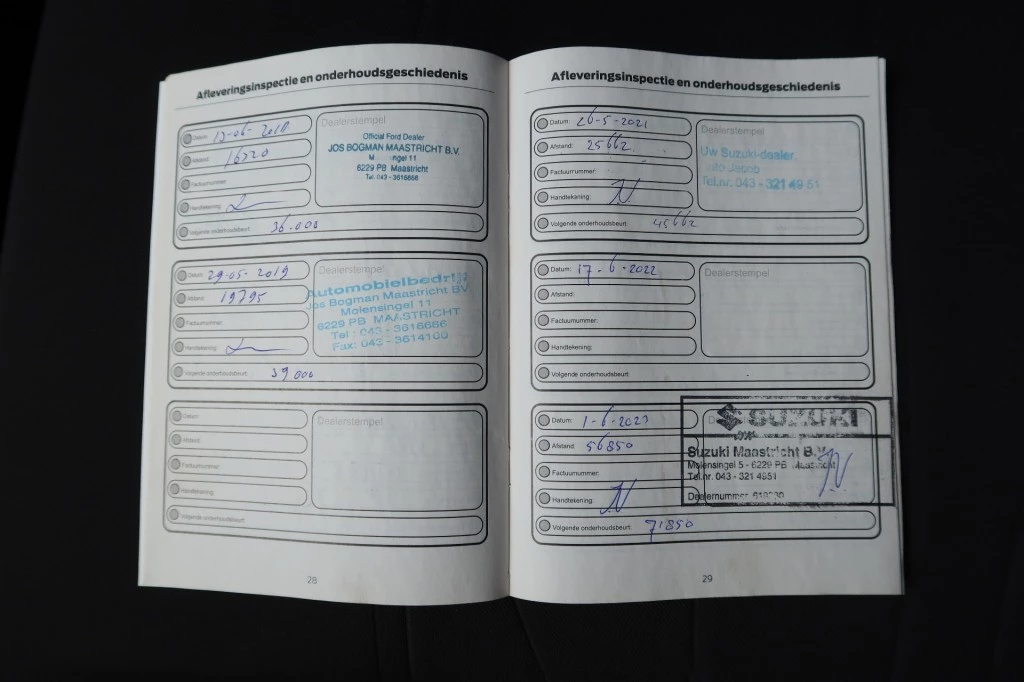 Afleveringsinspectie en onderhoudsgeschiedenis
Datum: 13-06-2018
Afstand: 16320
Factuurnummer:
Handtekening:
Volgende onderhoudsbeurt: 36.000
Dealerstempel
Official Ford Dealer
JOS BOGMAN MAASTRICHT B.V.
11
6229 PB Maastricht
Tel. 043 - 3616666
Datum: 29-05-2019
Afstand: 19795
Factuurnummer:
Handtekening:
Volgende onderhoudsbeurt: 39000
Dealerstempel
Automobielbedrijf
Jos Bogman Maastricht BV
Molensingel 11
6229 PB MAASTRICHT
Tel : 043 - 3616666
Fax: 043 - 3614100
Datum:
Afstand:
Factuurnummer:
Handtekening:
Volgende onderhoudsbeurt:
Dealerstempel
28
Afleveringsinspectie en onderhoudsgeschiedenis
Datum: 26-5-2021
Afstand: 25662
Factuurnummer:
Handtekening:
Volgende onderhoudsbeurt: 45662
Dealerstempel
Uw Suzuki-dealer
Tel.nr. 043 - 321 49 51
Datum: 17-6-2022
Afstand:
Factuurnummer:
Handtekening:
Volgende onderhoudsbeurt:
Dealerstempel
Datum: 1-6-2023
Afstand: 56850
Factuurnummer:
Handtekening:
Volgende onderhoudsbeurt: 71850
SUZUKI
Suzuki Maastricht B.V.
Molensingel 5 - 6229 PB Maastricht
Tel.nr. 043 - 321 4951
Dealernummer
29